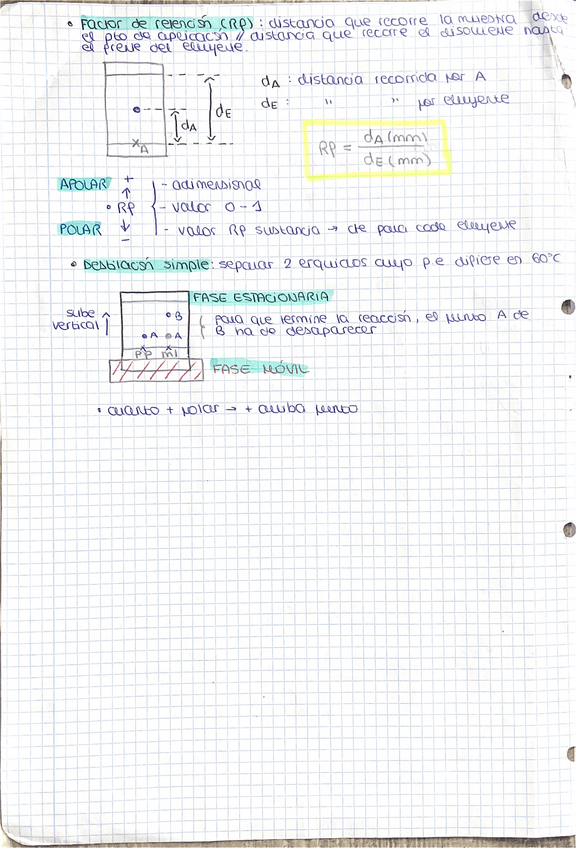 • Factor de retención (RP): distancia que recorre la muestra desde
el pto de aplicación // distancia que recorre el disolvente hasta
el frente del eluyente.
dA : distancia recorrida por A
dE : " " por eluyente
dA
dE
A
RP = dA (mm) / dE (mm)
APOLAR +
• RP
POLAR -
- adimensional
- valor 0-1
- valor RP sustancia → cte para cada eluyente
• Destilación simple: separar 2 líquidos cuyo p.e difiere en 60°C
FASE ESTACIONARIA
sube
vertical
• B
• A • A
PP m1
para que termine la reacción, el punto A de
B ha de desaparecer
FASE MÓVIL
• cuanto + polar → + arriba punto